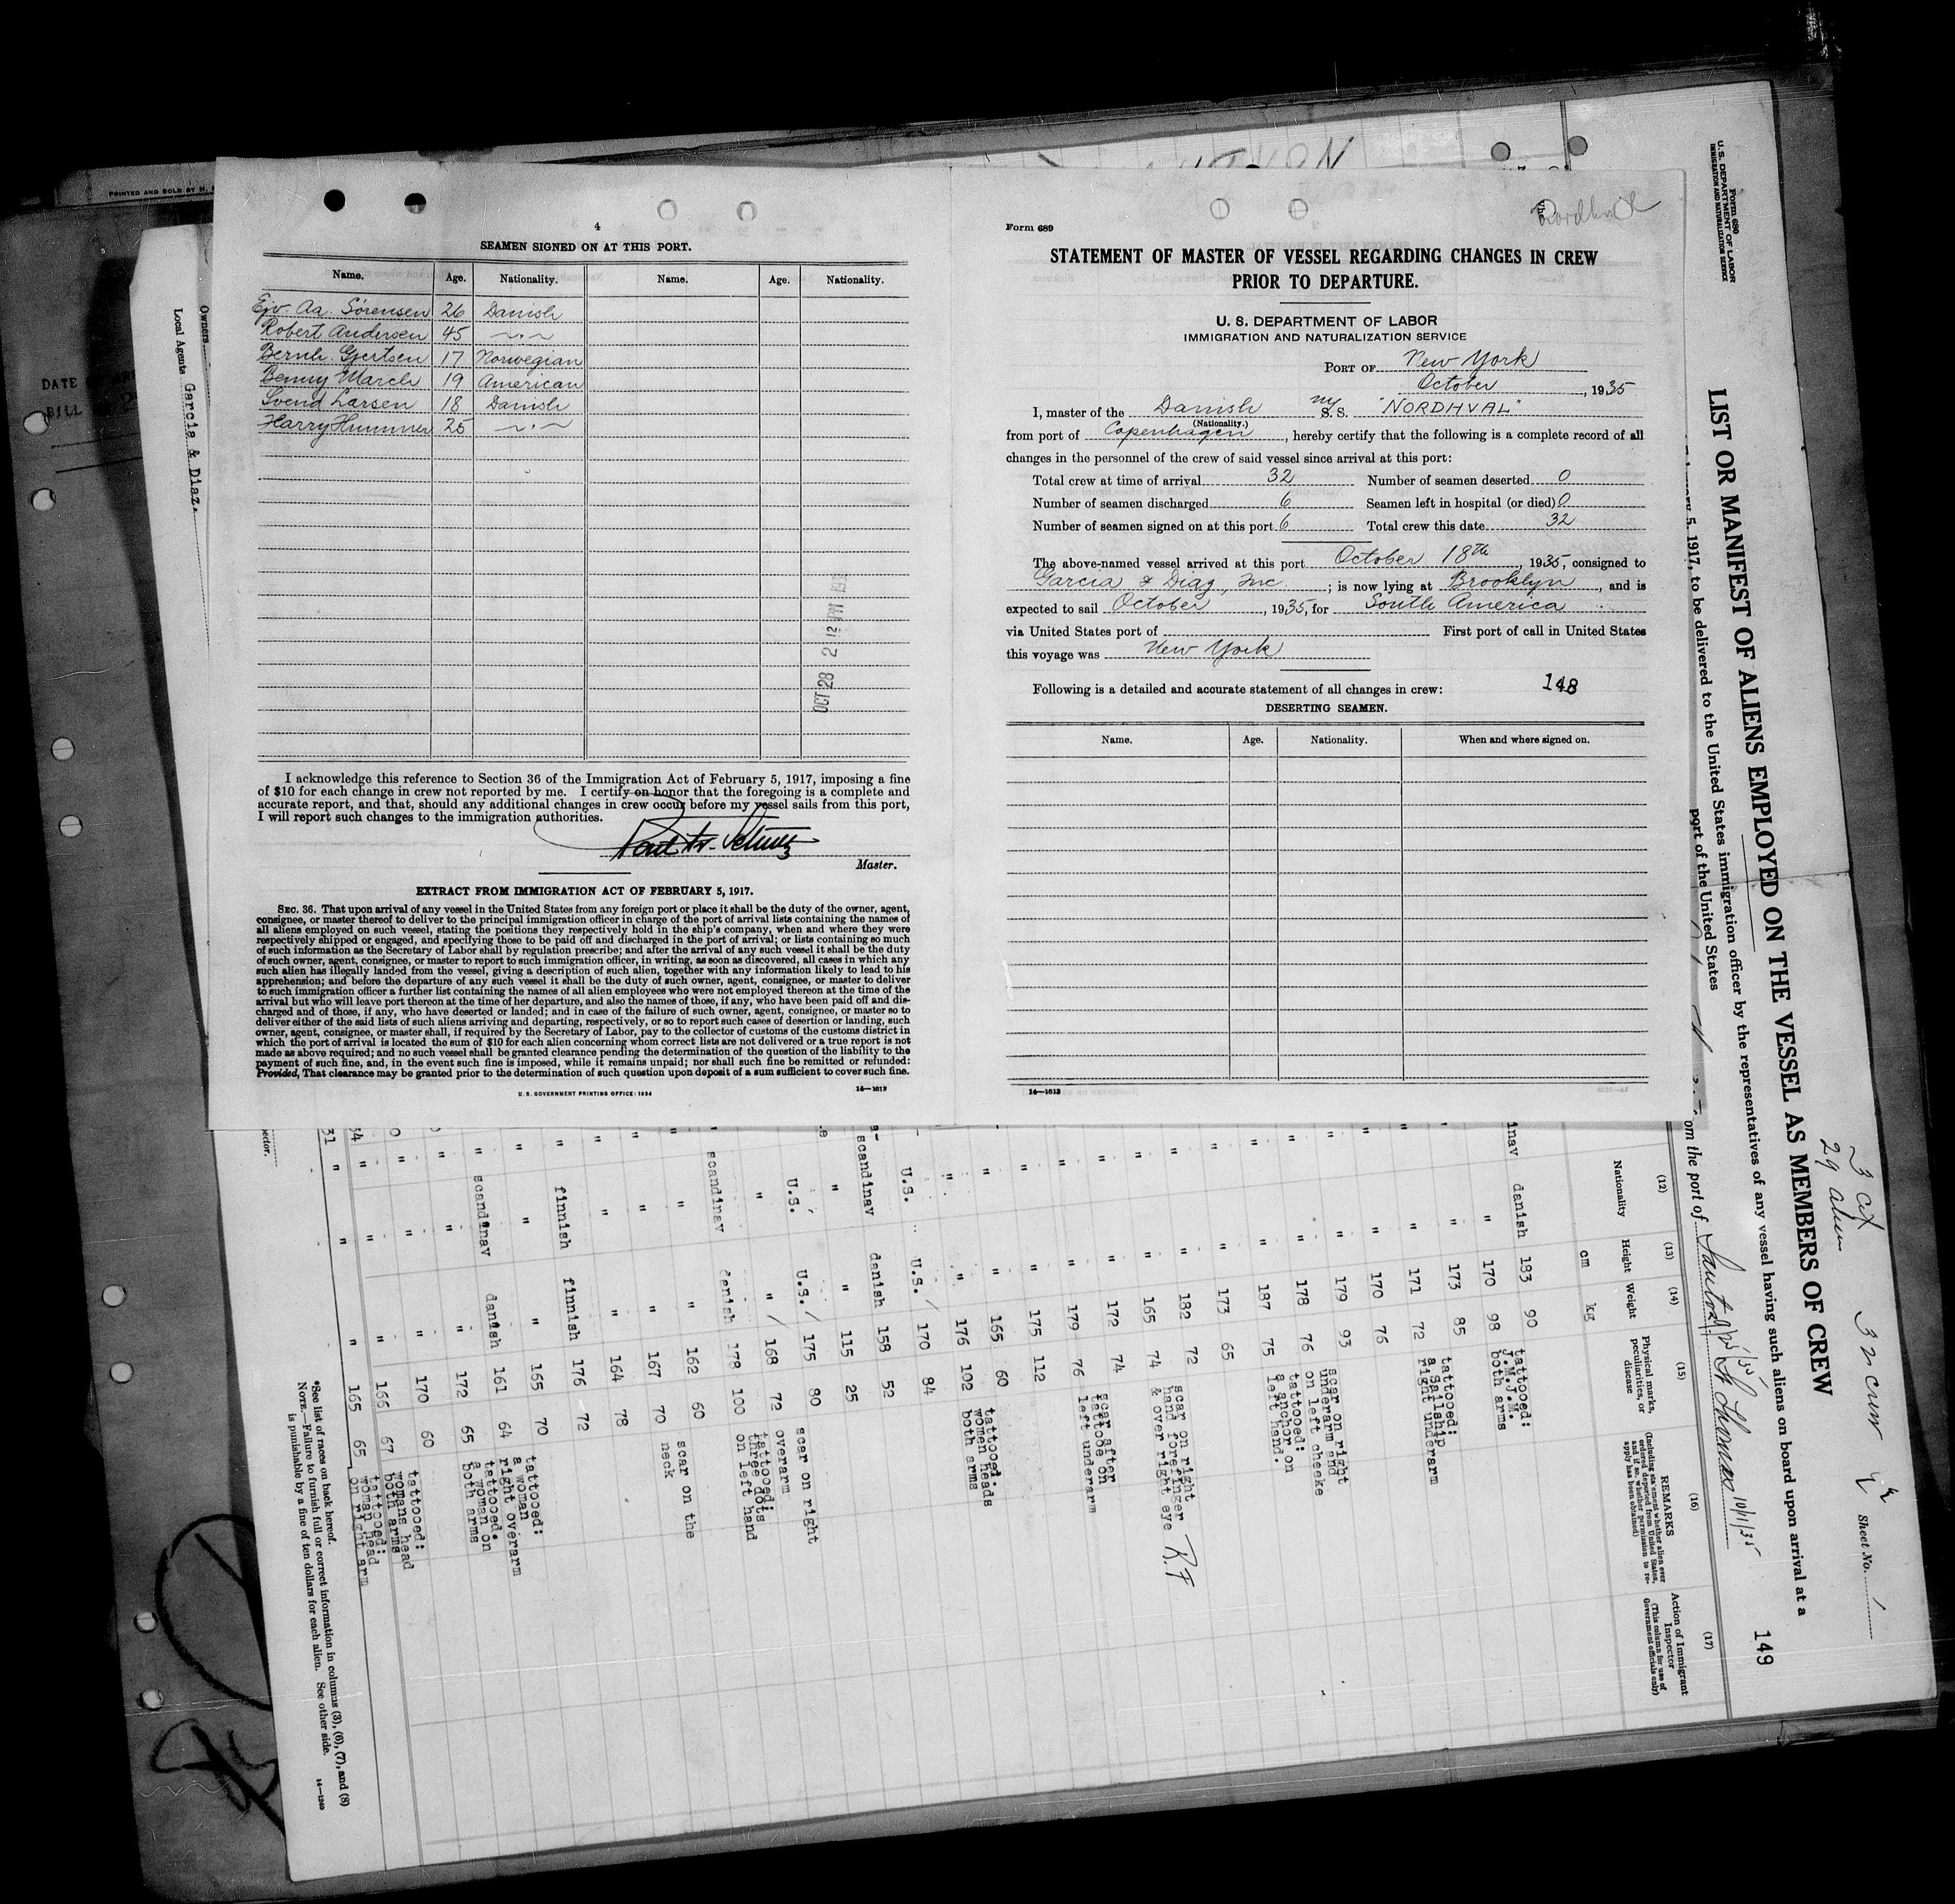 PRINTED AND SOLD BY H.
4
SEAMEN SIGNED ON AT THIS PORT.
Name. Age. Nationality. Name. Age. Nationality.
Ejv. Aa. Sörensen 26 Danish
Robert Andersen 45 ~·~
Bernh. Gjertsen 17 Norwegian
Benny March 19 American
Svend Larsen 18 Danish
Harry Hummer 25 ~·~
OCT 28 2 12 PM 193
I acknowledge this reference to Section 36 of the Immigration Act of February 5, 1917, imposing a fine
of $10 for each change in crew not reported by me. I certify on honor that the foregoing is a complete and
accurate report, and that, should any additional changes in crew occur before my vessel sails from this port,
I will report such changes to the immigration authorities.
Master.
EXTRACT FROM IMMIGRATION ACT OF FEBRUARY 5, 1917.
SEC. 36. That upon arrival of any vessel in the United States from any foreign port or place it shall be the duty of the owner, agent,
consignee, or master thereof to deliver to the principal immigration officer in charge of the port of arrival lists containing the names of
all aliens employed on such vessel, stating the positions they respectively hold in the ship's company, when and where they were
respectively shipped or engaged, and specifying those to be paid off and discharged in the port of arrival; or lists containing so much
of such information as the Secretary of Labor shall by regulation prescribe; and after the arrival of any such vessel it shall be the duty
of such owner, agent, consignee, or master to report to such immigration officer, in writing, as soon as discovered, all cases in which any
such alien has illegally landed from the vessel, giving a description of such alien, together with any information likely to lead to his
apprehension; and before the departure of any such vessel it shall be the duty of such owner, agent, consignee, or master to deliver
to such immigration officer a further list containing the names of all alien employees who were not employed thereon at the time of the
arrival but who will leave port thereon at the time of her departure, and also the names of those, if any, who have been paid off and dis-
charged and of those, if any, who have deserted or landed; and in case of the failure of such owner, agent, consignee, or master so to
deliver either of the said lists of such aliens arriving and departing, respectively, or so to report such cases of desertion or landing, such
owner, agent, consignee, or master shall, if required by the Secretary of Labor, pay to the collector of customs of the customs district in
which the port of arrival is located the sum of $10 for each alien concerning whom correct lists are not delivered or a true report is not
made as above required; and no such vessel shall be granted clearance pending the determination of the question of the liability to the
payment of such fine, and, in the event such fine is imposed, while it remains unpaid; nor shall such fine be remitted or refunded:
Provided, That clearance may be granted prior to the determination of such question upon deposit of a sum sufficient to cover such fine.
U. S. GOVERNMENT PRINTING OFFICE: 1934 14—1613
Form 689
STATEMENT OF MASTER OF VESSEL REGARDING CHANGES IN CREW
PRIOR TO DEPARTURE.
U. S. DEPARTMENT OF LABOR
IMMIGRATION AND NATURALIZATION SERVICE
PORT OF New York
October, 1935
I, master of the Danish my S. S. "NORDHVAL"
(Nationality.)
from port of Copenhagen, hereby certify that the following is a complete record of all
changes in the personnel of the crew of said vessel since arrival at this port:
Total crew at time of arrival 32 Number of seamen deserted 0
Number of seamen discharged 6 Seamen left in hospital (or died) 0
Number of seamen signed on at this port 6 Total crew this date 32
The above-named vessel arrived at this port October 18th, 1935, consigned to
Garcia & Diaz, Inc.; is now lying at Brooklyn, and is
expected to sail October, 1935, for South America
via United States port of First port of call in United States
this voyage was New York
Following is a detailed and accurate statement of all changes in crew: 148
DESERTING SEAMEN.
Name. Age. Nationality. When and where signed on.
14—1613
Form 680
U. S. DEPARTMENT OF LABOR
IMMIGRATION AND NATURALIZATION SERVICE
LIST OR MANIFEST OF ALIENS EMPLOYED ON THE VESSEL AS MEMBERS OF CREW
5, 1917, to be delivered to the United States immigration officer by the representatives of any vessel having such aliens on board upon arrival at a
port of the United States
om the port of
3 cit
29 alien
32 crew
Sheet No. 1
149
(12) Nationality
(13) Height cm
(14) Weight kg
(15) Physical marks, or peculiarities, or disease
(16) REMARKS
(17) Action of Immigrant Inspector
(This column for use of Government officials only)
danish 183 90 tattooed: J.M.J.M. both arms
" 170 98
" 173 85 tattooed: a Sailship right underarm
" 171 72
" 170 76
" 179 93 scar on right underarm and on left cheeke
" 178 76 tattooed: a anchor on left hand.
" 187 75
" 173 65
" 182 72 scar on right hand forefinger & over right eye R.F
" 165 74
" 172 74 scar after tattooe on left underarm
" 179 76
" 175 112
" 165 60 tattooed: women heads both arms
" 176 102
U.S. U.S. / 170 84
scandinav danish 158 52
" " 115 25
U.S. U.S. / 175 80 scar on right overarm
" " / 168 72 tattooed: three dots on left hand
scandinav danish 178 100
" " 162 60 scar on the neck
" " 167 70
" " 164 78
finnish finnish 176 72
" " 165 70 tattooed: a woman right overarm
scandinav danish 161 64 tattooed. a woman on both arms
" " 172 65
" " 170 60 tattooed: womans head both arms
" " 166 67 tattooed: woman head on right arm
" " 165 65
*See list of races on back hereof.
NOTE.—Failure to furnish full or correct information in columns (3), (6), (7), and (8)
is punishable by a fine of ten dollars for each alien. See other side. 14—1240
Owners
Local Agents Garcia & Diaz.